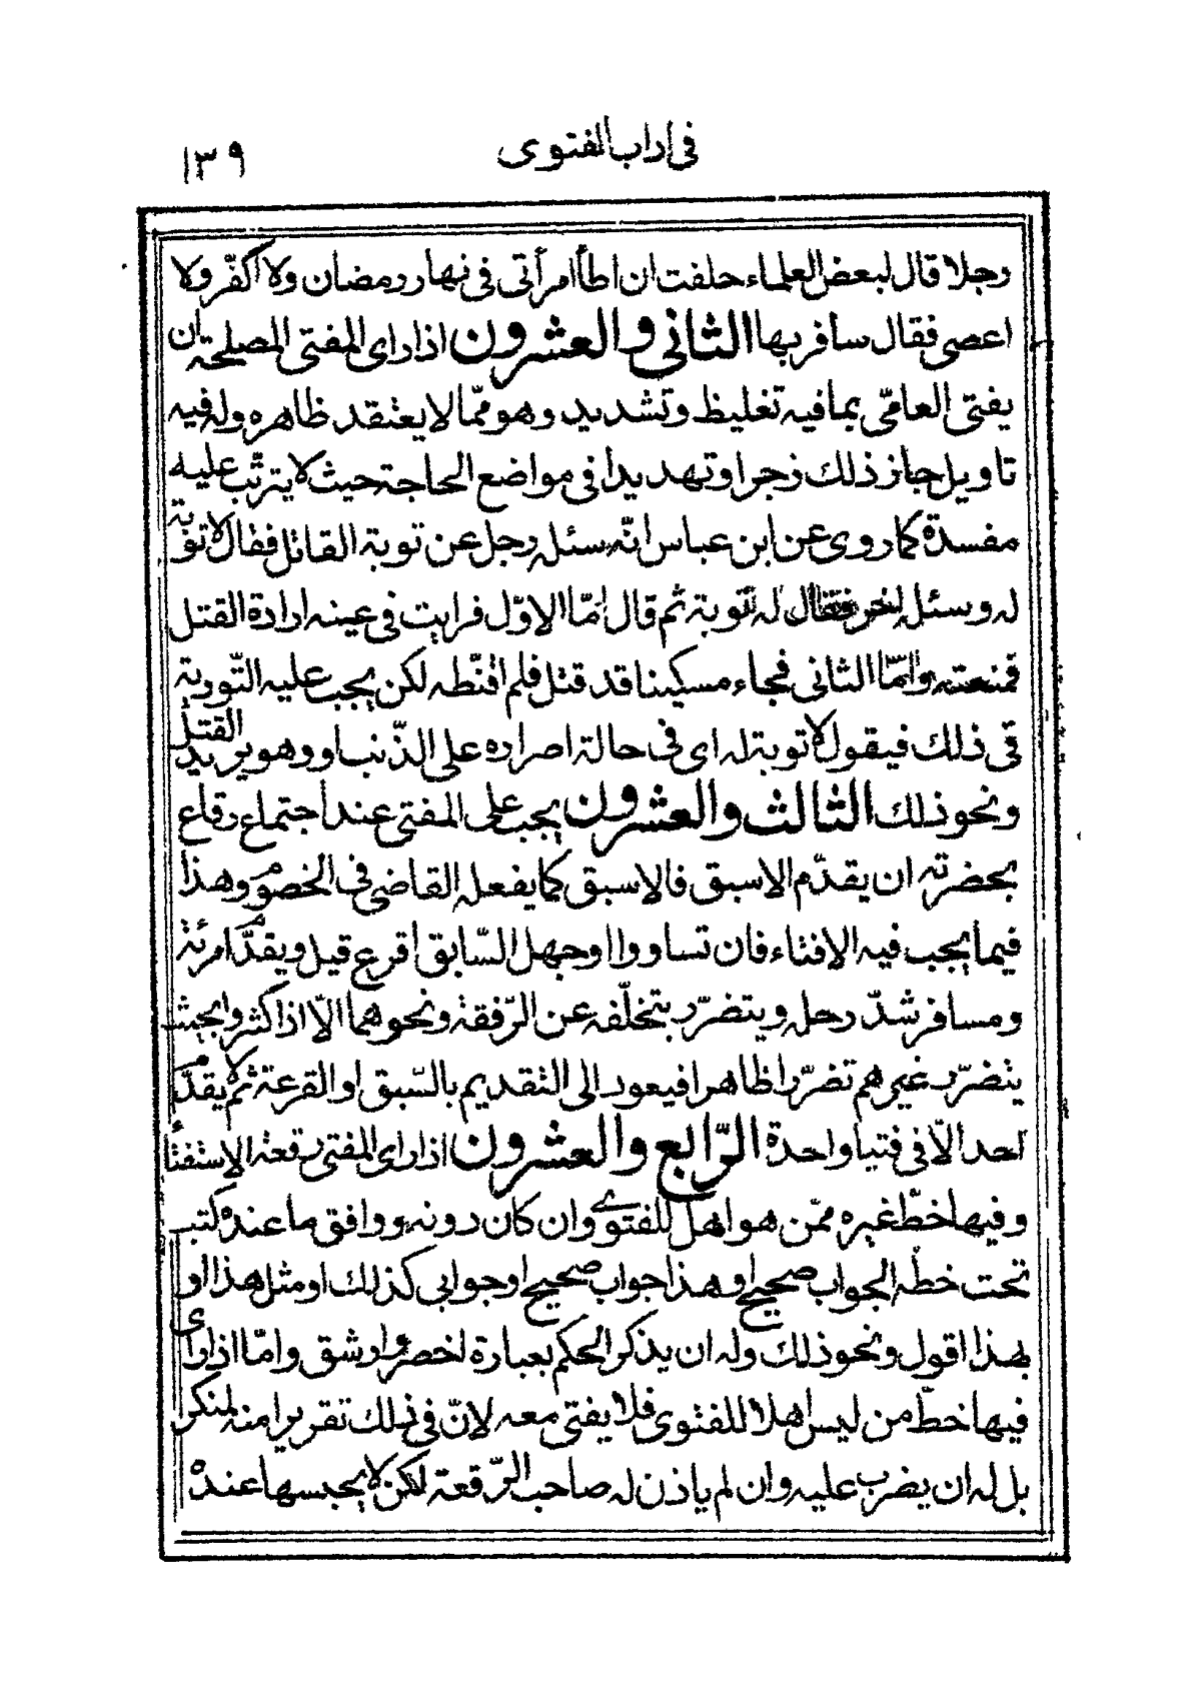 في اداب الفتوى
١٣٩
رجلا قال لبعض العلماء حلفت ان اطأ امرأتى في نهار رمضان ولا اكفّر ولا
اعصى فقال سافر بها الثاني والعشرون اذا راى المفتى المصلحة ان
يفتى العامّى بما فيه تغليظ وتشديد وهو ممّا لا يعتقد ظاهره وله فيه
تاويل جاز ذلك زجرا وتهديدا في مواضع الحاجة حيث لا يترتّب عليه
مفسدة كما روى عن ابن عباس انّه سئله رجل عن توبة القاتل فقال لا توبة
له وسئله اخر فقال له توبة ثم قال امّا الاوّل فرايت في عينه ارادة القتل
فمنعته وامّا الثانى فجاء مسكينا قد قتل فلم اقنّطه لكن يجب عليه التّورية
في ذلك فيقول لا توبة له اى في حالة اصراره على الذّنب او وهو يريد القتل
ونحو ذلك الثالث والعشرون يجب على المفتى عند اجتماع رقاع
بحضرته ان يقدّم الاسبق فالاسبق كما يفعله القاضى في الخصوم وهذا
فيما يجب فيه الافتاء فان تساووا او جهل السّابق اقرع قيل ويقدّم امرئة
ومسافر شدّ رحله ويتضرّر بتخلّفه عن الرّفقة ونحوهما الّا اذا كثروا بحيث
يتضرّر غيرهم تضرّرا ظاهرا فيعود الى التقديم بالسّبق او القرعة ثم لا يقدّم
احد الّا في فتيا واحدة الرّابع والعشرون اذا راى المفتى رقعة الاستفتاء
وفيها خطّ غيره ممّن هو اهل للفتوى وان كان دونه ووافق ما عنده كتب
تحت خطّه الجواب صحيح او هذا جواب صحيح او جوابى كذلك او مثل هذا او
بهذا اقول ونحو ذلك وله ان يذكر الحكم بعبارة اخصر وارشق وامّا اذا راى
فيها خطّ من ليس اهلا للفتوى فلا يفتى معه لانّ في ذلك تقريرا منه لمنكر
بل له ان يضرب عليه وان لم ياذن له صاحب الرّقعة لكن لا يحبسها عنده